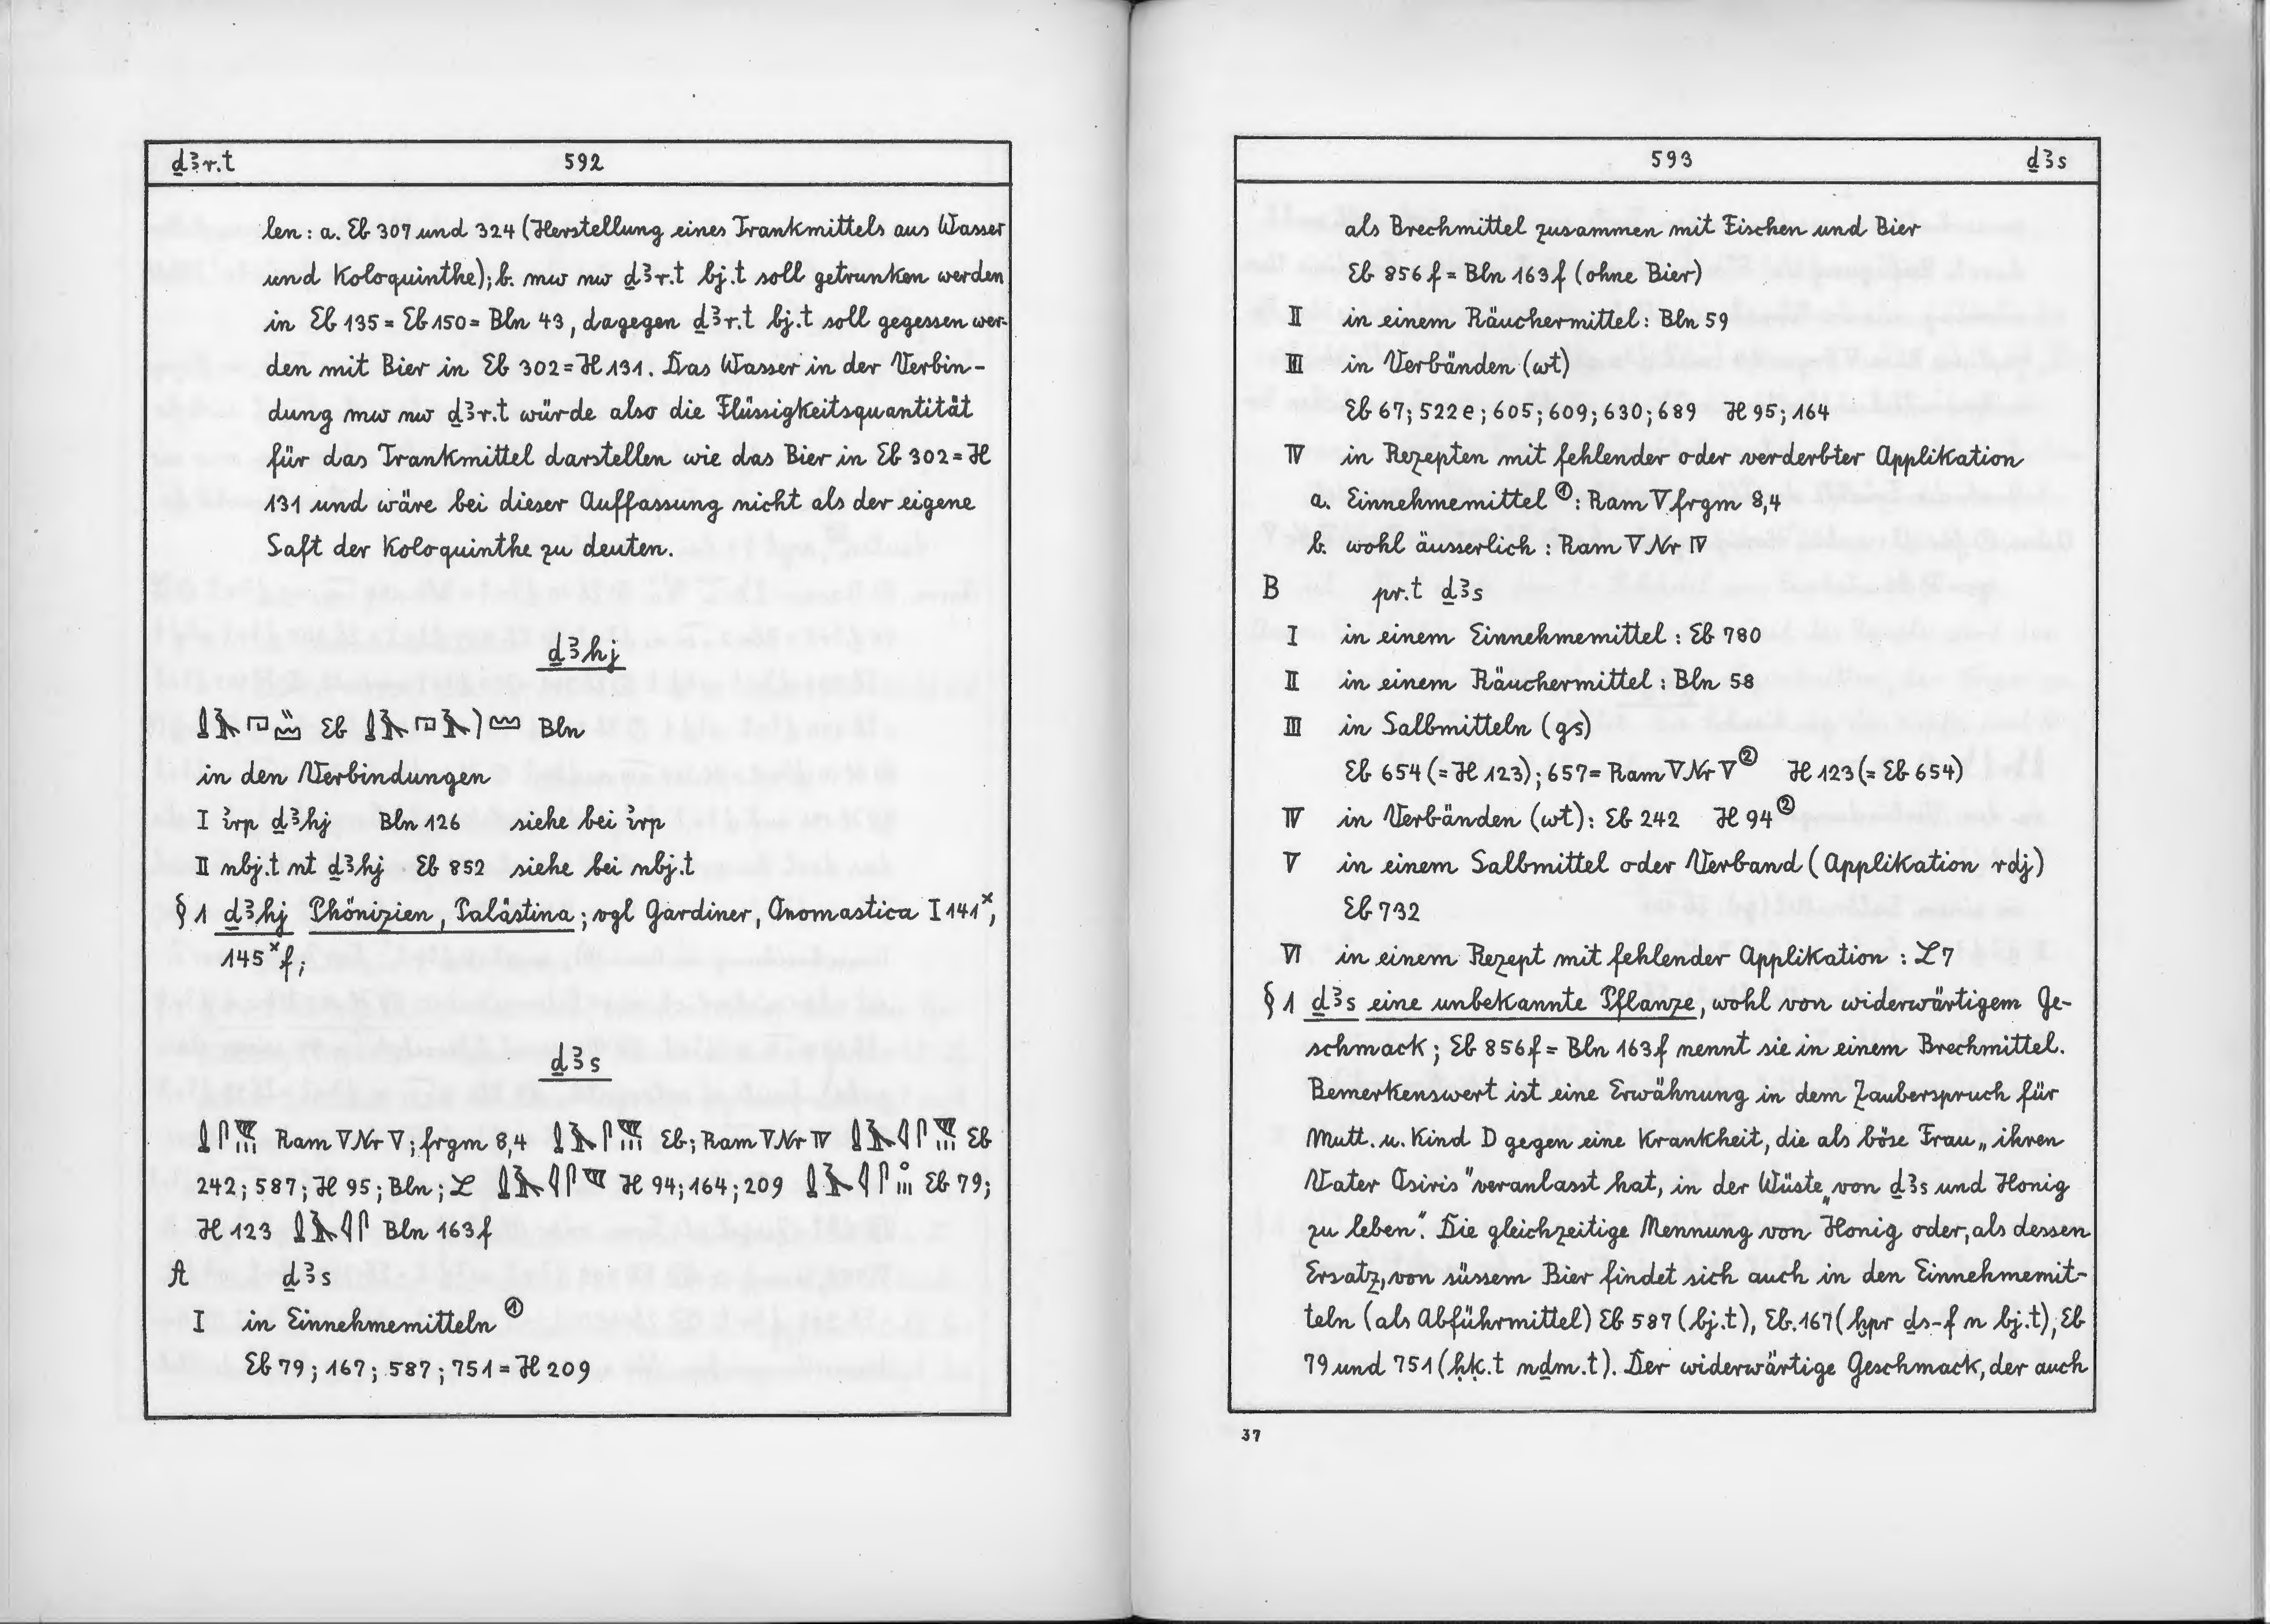 ḏꜣr.t 592
len: a. Eb 307 und 324 (Herstellung eines Trankmittels aus Wasser
und Koloquinthe); b. mw nw ḏꜣr.t bj.t soll getrunken werden
in Eb 135 = Eb 150 = Bln 43, dagegen ḏꜣr.t bj.t soll gegessen wer-
den mit Bier in Eb 302 = H 131. Das Wasser in der Verbin-
dung mw nw ḏꜣr.t würde also die Flüssigkeitsquantität
für das Trankmittel darstellen wie das Bier in Eb 302 = H
131 und wäre bei dieser Auffassung nicht als der eigene
Saft der Koloquinthe zu deuten.
ḏꜣhj
Eb Bln
in den Verbindungen
I ı͗rp ḏꜣhj Bln 126 siehe bei ı͗rp
II nbj.t nt ḏꜣhj Eb 852 siehe bei nbj.t
§ 1 ḏꜣhj Phönizien, Palästina; vgl Gardiner, Onomastica I 141ˣ,
145ˣ f;
ḏꜣs
Ram V Nr V; frgm 8,4 Eb; Ram V Nr IV Eb
242; 587; H 95; Bln; L H 94; 164; 209 Eb 79;
H 123 Bln 163 f
A ḏꜣs
I in Einnehmemitteln ①
Eb 79; 167; 587; 751 = H 209
593 ḏꜣs
als Brechmittel zusammen mit Fischen und Bier
Eb 856 f = Bln 163 f (ohne Bier)
II in einem Räuchermittel: Bln 59
III in Verbänden (wt)
Eb 67; 522 e; 605; 609; 630; 689 H 95; 164
IV in Rezepten mit fehlender oder verderbter Applikation
a. Einnehmemittel ①: Ram V frgm 8,4
b. wohl äusserlich: Ram V Nr IV
B pr.t ḏꜣs
I in einem Einnehmemittel: Eb 780
II in einem Räuchermittel: Bln 58
III in Salbmitteln (gs)
Eb 654 (= H 123); 657 = Ram V Nr V ② H 123 (= Eb 654)
IV in Verbänden (wt): Eb 242 H 94 ②
V in einem Salbmittel oder Verband (Applikation rdj)
Eb 732
VI in einem Rezept mit fehlender Applikation: L 7
§ 1 ḏꜣs eine unbekannte Pflanze, wohl von widerwärtigem Ge-
schmack; Eb 856 f = Bln 163 f nennt sie in einem Brechmittel.
Bemerkenswert ist eine Erwähnung in dem Zauberspruch für
Mutt. u. Kind D gegen eine Krankheit, die als böse Frau „ihren
Vater Osiris" veranlasst hat, in der Wüste „von ḏꜣs und Honig
zu leben". Die gleichzeitige Nennung von Honig oder, als dessen
Ersatz, von süssem Bier findet sich auch in den Einnehmemit-
teln (als Abführmittel) Eb 587 (bj.t), Eb. 167 (ḫpr ḏs-f n bj.t), Eb
79 und 751 (ḥḳ.t nḏm.t). Der widerwärtige Geschmack, der auch
37